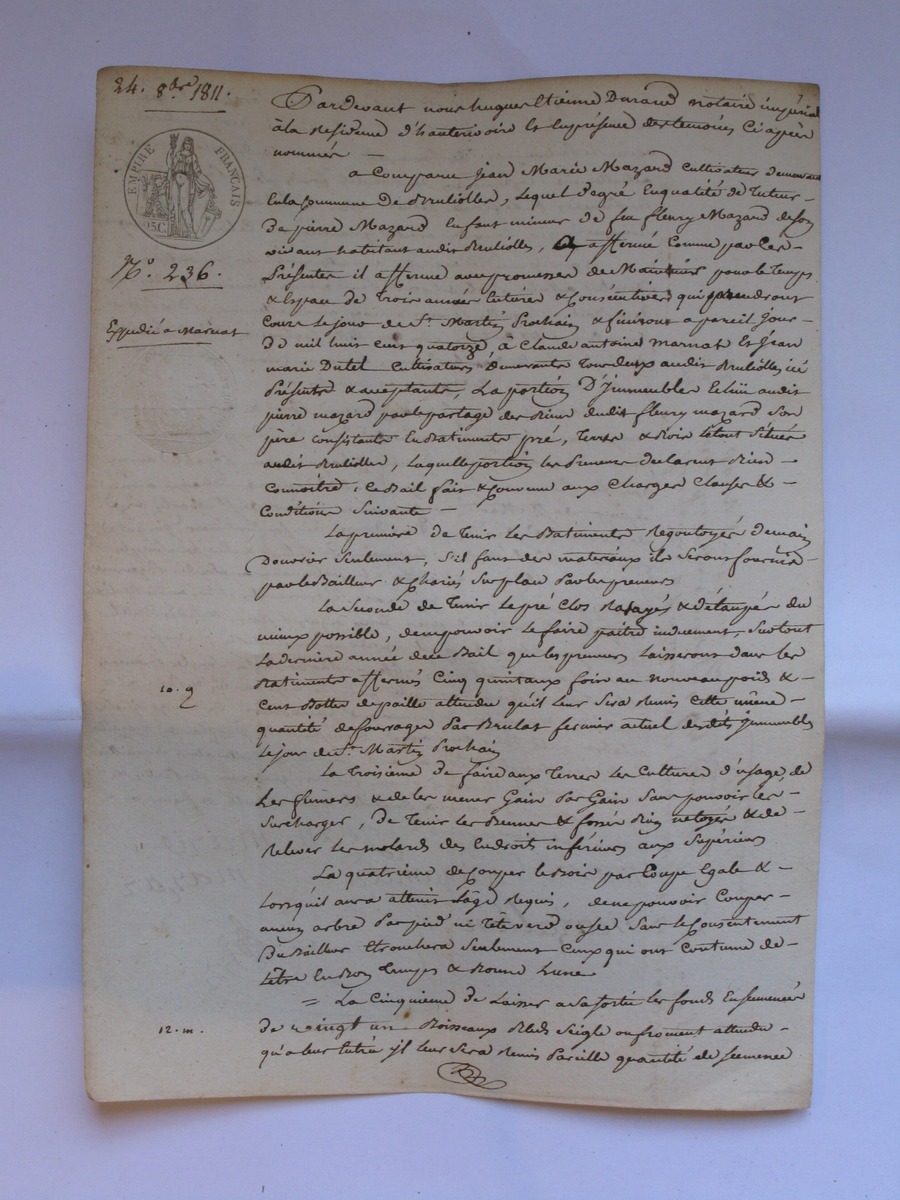 24. 8bre 1811.
EMPIRE FRANÇAIS
25C.
No. 236.
Expédié a Marnat
10. g
12. m.
Pardevant nous hugues Etienne Durand notaire impérial
à la Residence d'hauterivoire Et En présence des temoins Ci après
nommés —
a Comparu Jean Marie Mazard Cultivateur demeurant
En la Commune de Brulioles, lequel degré En qualité de Tuteur
De pierre Mazard Enfant mineur de feu fleury Mazard de son
vivant habitant audit Brulioles, a affermé Comme par Ces
Présentes il afferme avec promesse de Maintenir pour le Temps
& Espace de Trois années Entieres & Consécutives qui prendront
Cours le jour de St. Martin Prochain & finiront a pareil Jour
De mil huit Cent quatorze à Claude antoine Marnat Et Jean
marie Dutel Cultivateurs demeurants Tous deux audit Brulioles ici
Présents & acceptants, La portion D'Immeubles Echue audit
pierre mazard par le partage des Biens dudit fleury mazard Son
père Consistante En Batiments pré, Terre & Bois le tout Situés
audit Brulioles, laquelle portion les Preneurs declarent Bien
Connoître, Ce Bail fait & Convenu aux Charges Clauses &
Conditions Suivantes —
La première de Tenir Les Batiments Regoutoyés de main
Douvrier Seulement, S'il faut des materiaux ils Seront fournis
par le Bailleur & Chariés Sur place Par les preneurs
La Seconde de Tenir Le pré Clos & détaupés du
mieux possible, de ne pouvoir Le faire paitre induement, Surtout
La derniere année de ce Bail que les preneurs Laisseront dans les
Batiments affermés Cinq quintaux foin au nouveau poids &
Cent Bottes de paille attendu qu'il Leur Sera Remis Cette même
quantité de fourrages Par Brulat fermier actuel des dits Immeubles
Le jour de St. Martin Prochain
La Troisieme de faire aux Terres Les Cultures d'usage, de
Les fumer & de les mener Gain Par Gain Sans pouvoir les
Surcharger, de Tenir Les & fossés Bien netoyés & de
Relever Les molards des Endroit inférieurs aux Supérieurs
La quatrieme de Couper Le Bois par Coupe Egale &
Lorsqu'il aura atteint L'âge Requis, de ne pouvoir Couper
aucun arbre Par pied ni Tête verd ou sec Sans le Consentement
Du Bailleur Et Seulement Ceux qui ont Coutume de
L'être En Bon Temps & Bonne Lune
= La Cinquieme de Laisser a Sa Sortie les fonds Ensemencés
de vingt un Boisseaux Bleds Seigle ou froment attendu
qu'a Leur Entrée il Leur Sera Remis Pareille quantité de Semence